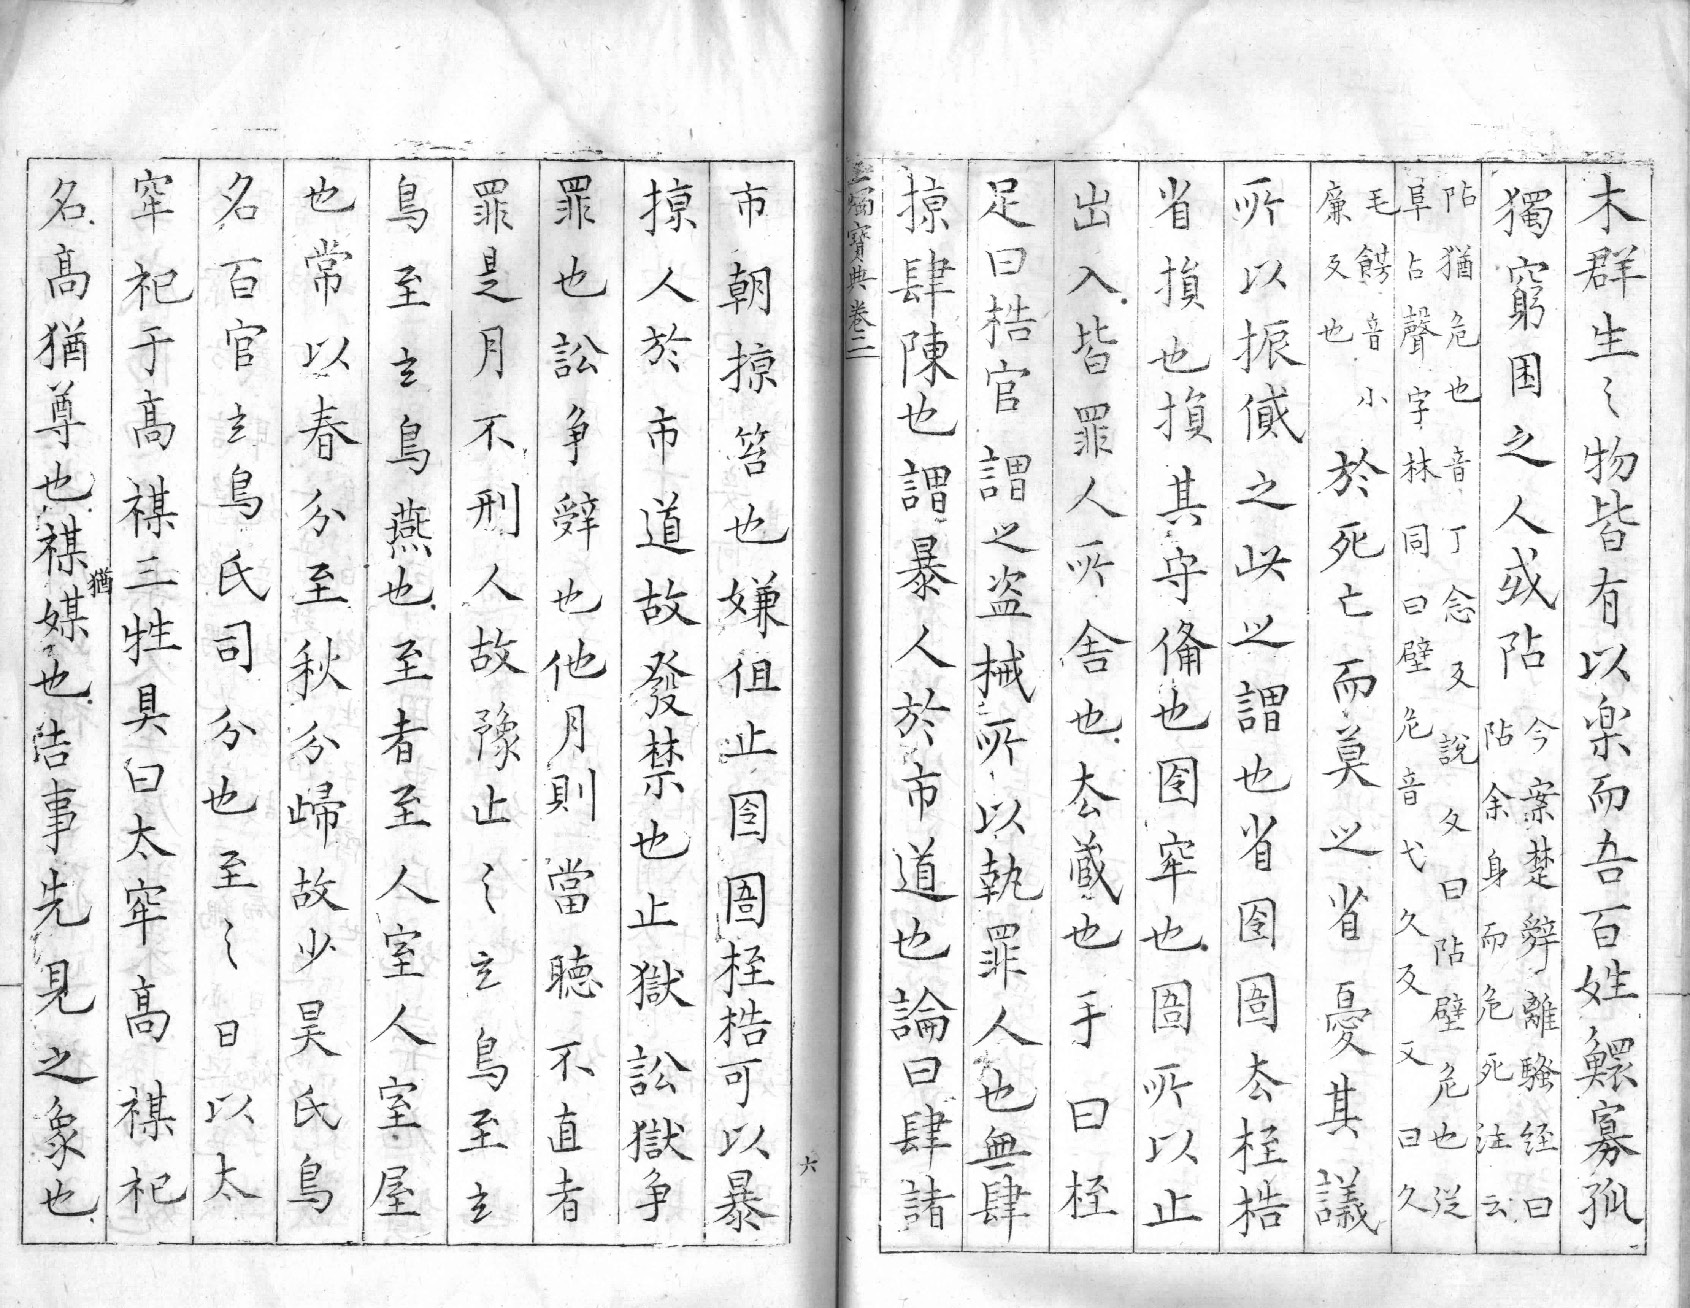 木群生〻物皆有以楽而吾百姓鰥寡孤
獨窮困之人或阽
今案楚辭離騷経曰
阽余身而危死注云
阽猶危也音丁念反説文曰阽壁危也従
阜占聲字林同曰壁危音弋久反又曰久
毛餝音小
廉反也
於死亡而莫之省憂其議
所以振貸之此之謂也省囹圄去桎梏
省損也損其守備也囹牢也圄所以止
出入皆罪人所舎也去蔵也手曰桎
足曰梏官謂之盗械所以執罪人也無肆
掠肆陳也謂暴人於市道也論曰肆諸
玉燭寶典卷二
六
市朝掠笞也嫌伹止囹圄桎梏可以暴
掠人於市道故發禁也止獄訟獄争
罪也訟争辞也他月則當聴不直者
罪是月不刑人故豫止〻玄鳥至玄
鳥至玄鳥燕也至者至人室人室屋
也常以春分至秋分帰故少昊氏鳥
名百官玄鳥氏司分也至〻日以太
牢祀于高禖三牲具曰太牢高禖祀
名高猶尊也禖猶媒也吉事先見之象也